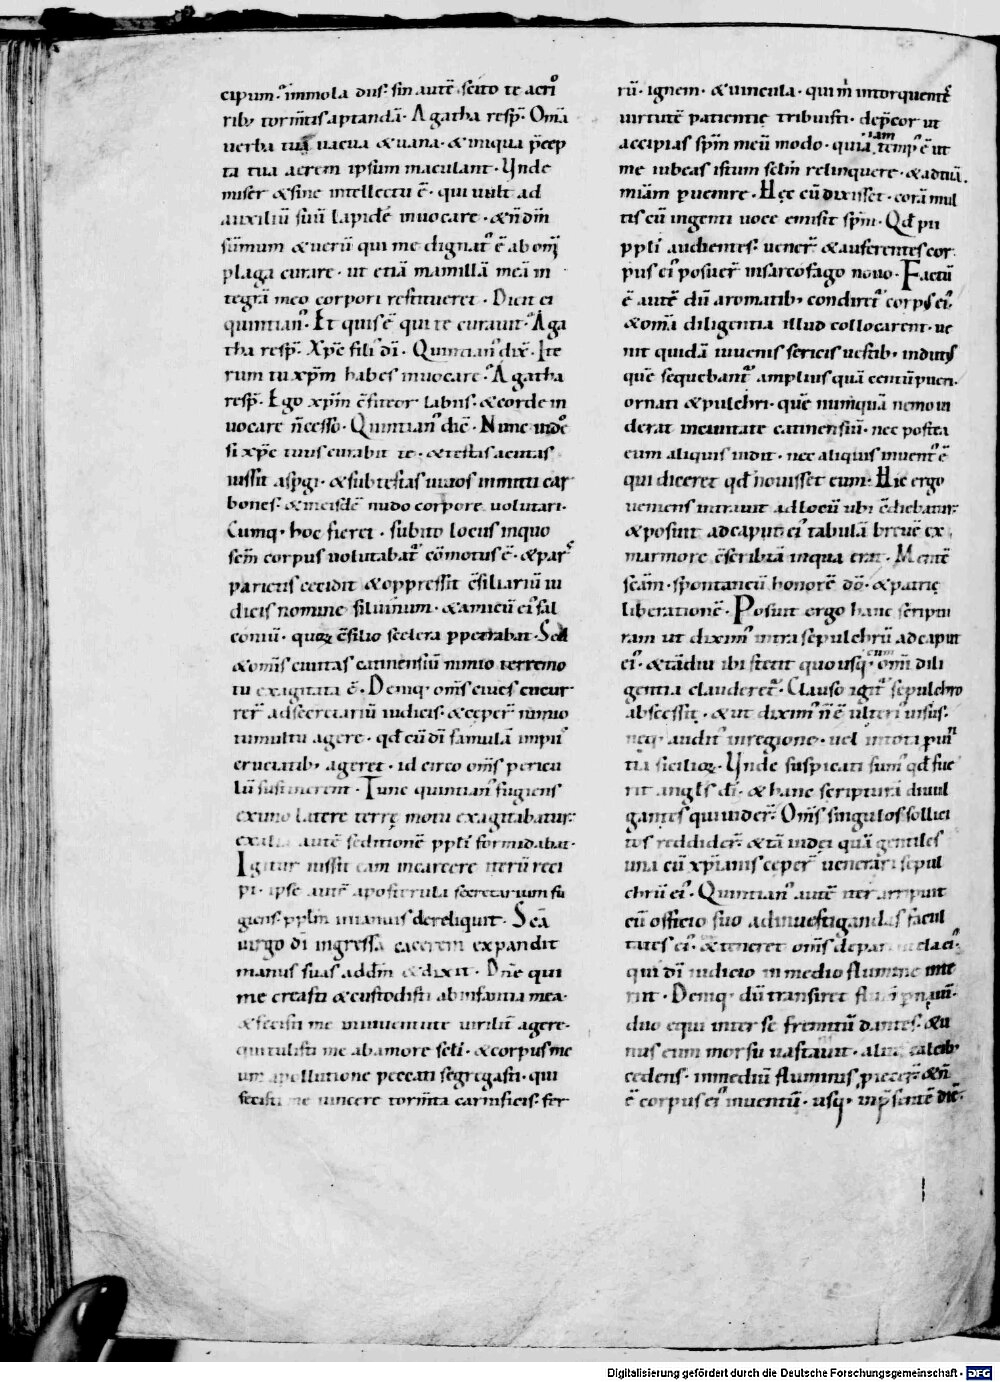 cipum᷎. immola dn̄s. sin autē scito te acri᷎o
rib; torm̄tis aptandā. Agatha resp̄. Om̄a
uerba tua uacua &uana. &iniqua p̄cep
ta tua aerem ipsum maculant. Unde
miser &sine intellectu ē. qui uult ad
auxiliū suū lapidē inuocare. &ñ dm̄
sūmum &uerū qui me dignat᷎ ē ab om̄i
plaga curare. ut etiā mamillā meā in
tegrā meo corpori restitueret. Dicit ei
quintian᷎. Et quis ē qui te curauit. Aga
tha resp̄. Xp̄c fili᷎ dī. Quintian᷎ dix̄. Ite
rum tu xp̄m habes inuocare. Agatha
resp̄. Ego xp̄m c̄fiteor labiis. &corde in
uocare ñcesso. Quintian᷎ dic̄. Nunc uideo
si xp̄c tuus curabit te. &testas acutas
iussit asp̄gi. &subtestas uiuos inmitti car
bones. &ineisdē nudo corpore uolutari.
Cumq. hoc fieret. subito locus inquo
sc̄m corpus uolutabat᷎ cōmotus ē. &pars
parietis cecidit &oppressit c̄siliariū iu
dicis nomine siluinum. &amicū ei᷎ fal
coniū. quoꝝ c̄silio scelera ppetrabat. Sed
&om̄is ciuitas catinensiū nimio terremo
tu exagitata ē. Demq. om̄s ciues cucur
rer̄ adsecretariū iudicis. &ceper̄ nimio
tumultu agere. qd̄ cū dī famulā impii᷎
cruciatib; ageret. id circo om̄s pericu
lū sustinerent. Tunc quintian᷎ fugiens
exuno latere terrę motu exagitabatur.
exalia autē seditionē pp̄li formidabat.
Igitur iussit eam incarcere iterū reci
pi. ipse autē aposterula secretarium fu
giens. pp̄lm inianuis dereliquit. Sc̄a
uirgo dī ingressa carcerem expandit
manus suas addm̄ &dixit. Dn̄e qui
me creasti &custodisti abinfantia mea.
&fecisti me iniuuentute uirilit᷎ agere.
qui tulisti me abamore sc̄li. &corpus me
um apollutione peccati segregasti. qui
fecisti me uincere torm̄ta carnificis. fer
rū. ignem. &uincula. qui m̄ intorquem̄t᷎
uirtutē patientię tribuisti. dep̄cor ut
accipias sp̄m meū modo. quia iam temp᷎ ē ut
me iubeas istum sc̄lm relinquere. &adtuā
mi᷎am puenire. Hęc cū dixisset. corā mul
tis cū ingenti uoce emisit sp̄m. Qd̄ pii
pp̄li audientes. uener̄ &auferentes cor
pus ei᷎ posuer̄ insarcofago nouo. Factū
ē autē dū aromatib; condiret᷎ corpus ei᷎.
&om̄a diligentia illud collocarent. ue
nit quidā iuuenis sericis uestib; indutus
quē sequebant᷎ amplius quā centū pueri.
ornati &pulchri. quē numquā nemo ui
derat inciuitate catinensiū. nec postea
eum aliquis uidit. nec aliquis inuent᷎ ē
qui diceret qd̄ nouisset eum. Hic ergo
ueniens intrauit adlocū ubi c̄diebatur.
&posuit adcaput ei᷎ tabulā breuē ex
marmore c̄scribtā inqua erat. Mentē
sc̄am. spontaneū honorē dō. &patrię
liberationē. Posuit ergo hanc scriptu
ram ut dixim᷎ intra sepulchrū adcaput
ei᷎. &tādiu ibi stetit quousq. cum om̄i dili
gentia clauderet᷎. Clauso igit᷎ sepulchro
abscessit. &ut dixim᷎ ñ ē ulteri᷎ uisus.
neq. audit᷎ inregione. uel intota puin
tia sicilioꝝ. Unde suspicati sum᷎ qd̄ fue
rit angl̄s dī. &hanc scripturā diuul
gantes qui uider̄. Om̄s singulos sollici
tos reddider̄. &tā iudei quā gentiles
una cū xp̄ianis ceper̄ uenerari sepul
chrū ei᷎. Quintian᷎ autē iter arripuit
cū officio suo adinuestigandas facul
tates ei᷎. &teneret om̄s deparentela ei᷎.
qui dī iudicio inmedio flumine inte
riit. Demq. dū transiret pnauū.
duo equi inter se fremitū dantes. &u
nus eum morsu uastauit. alius calcib;
cedens. inmediū fluminis piecer̄. &ñ
ē corpus ei᷎ inuentū. usq. inp̄sentē diē.
Digitalisierung gefördert durch die Deutsche Forschungsgemeinschaft - DFG